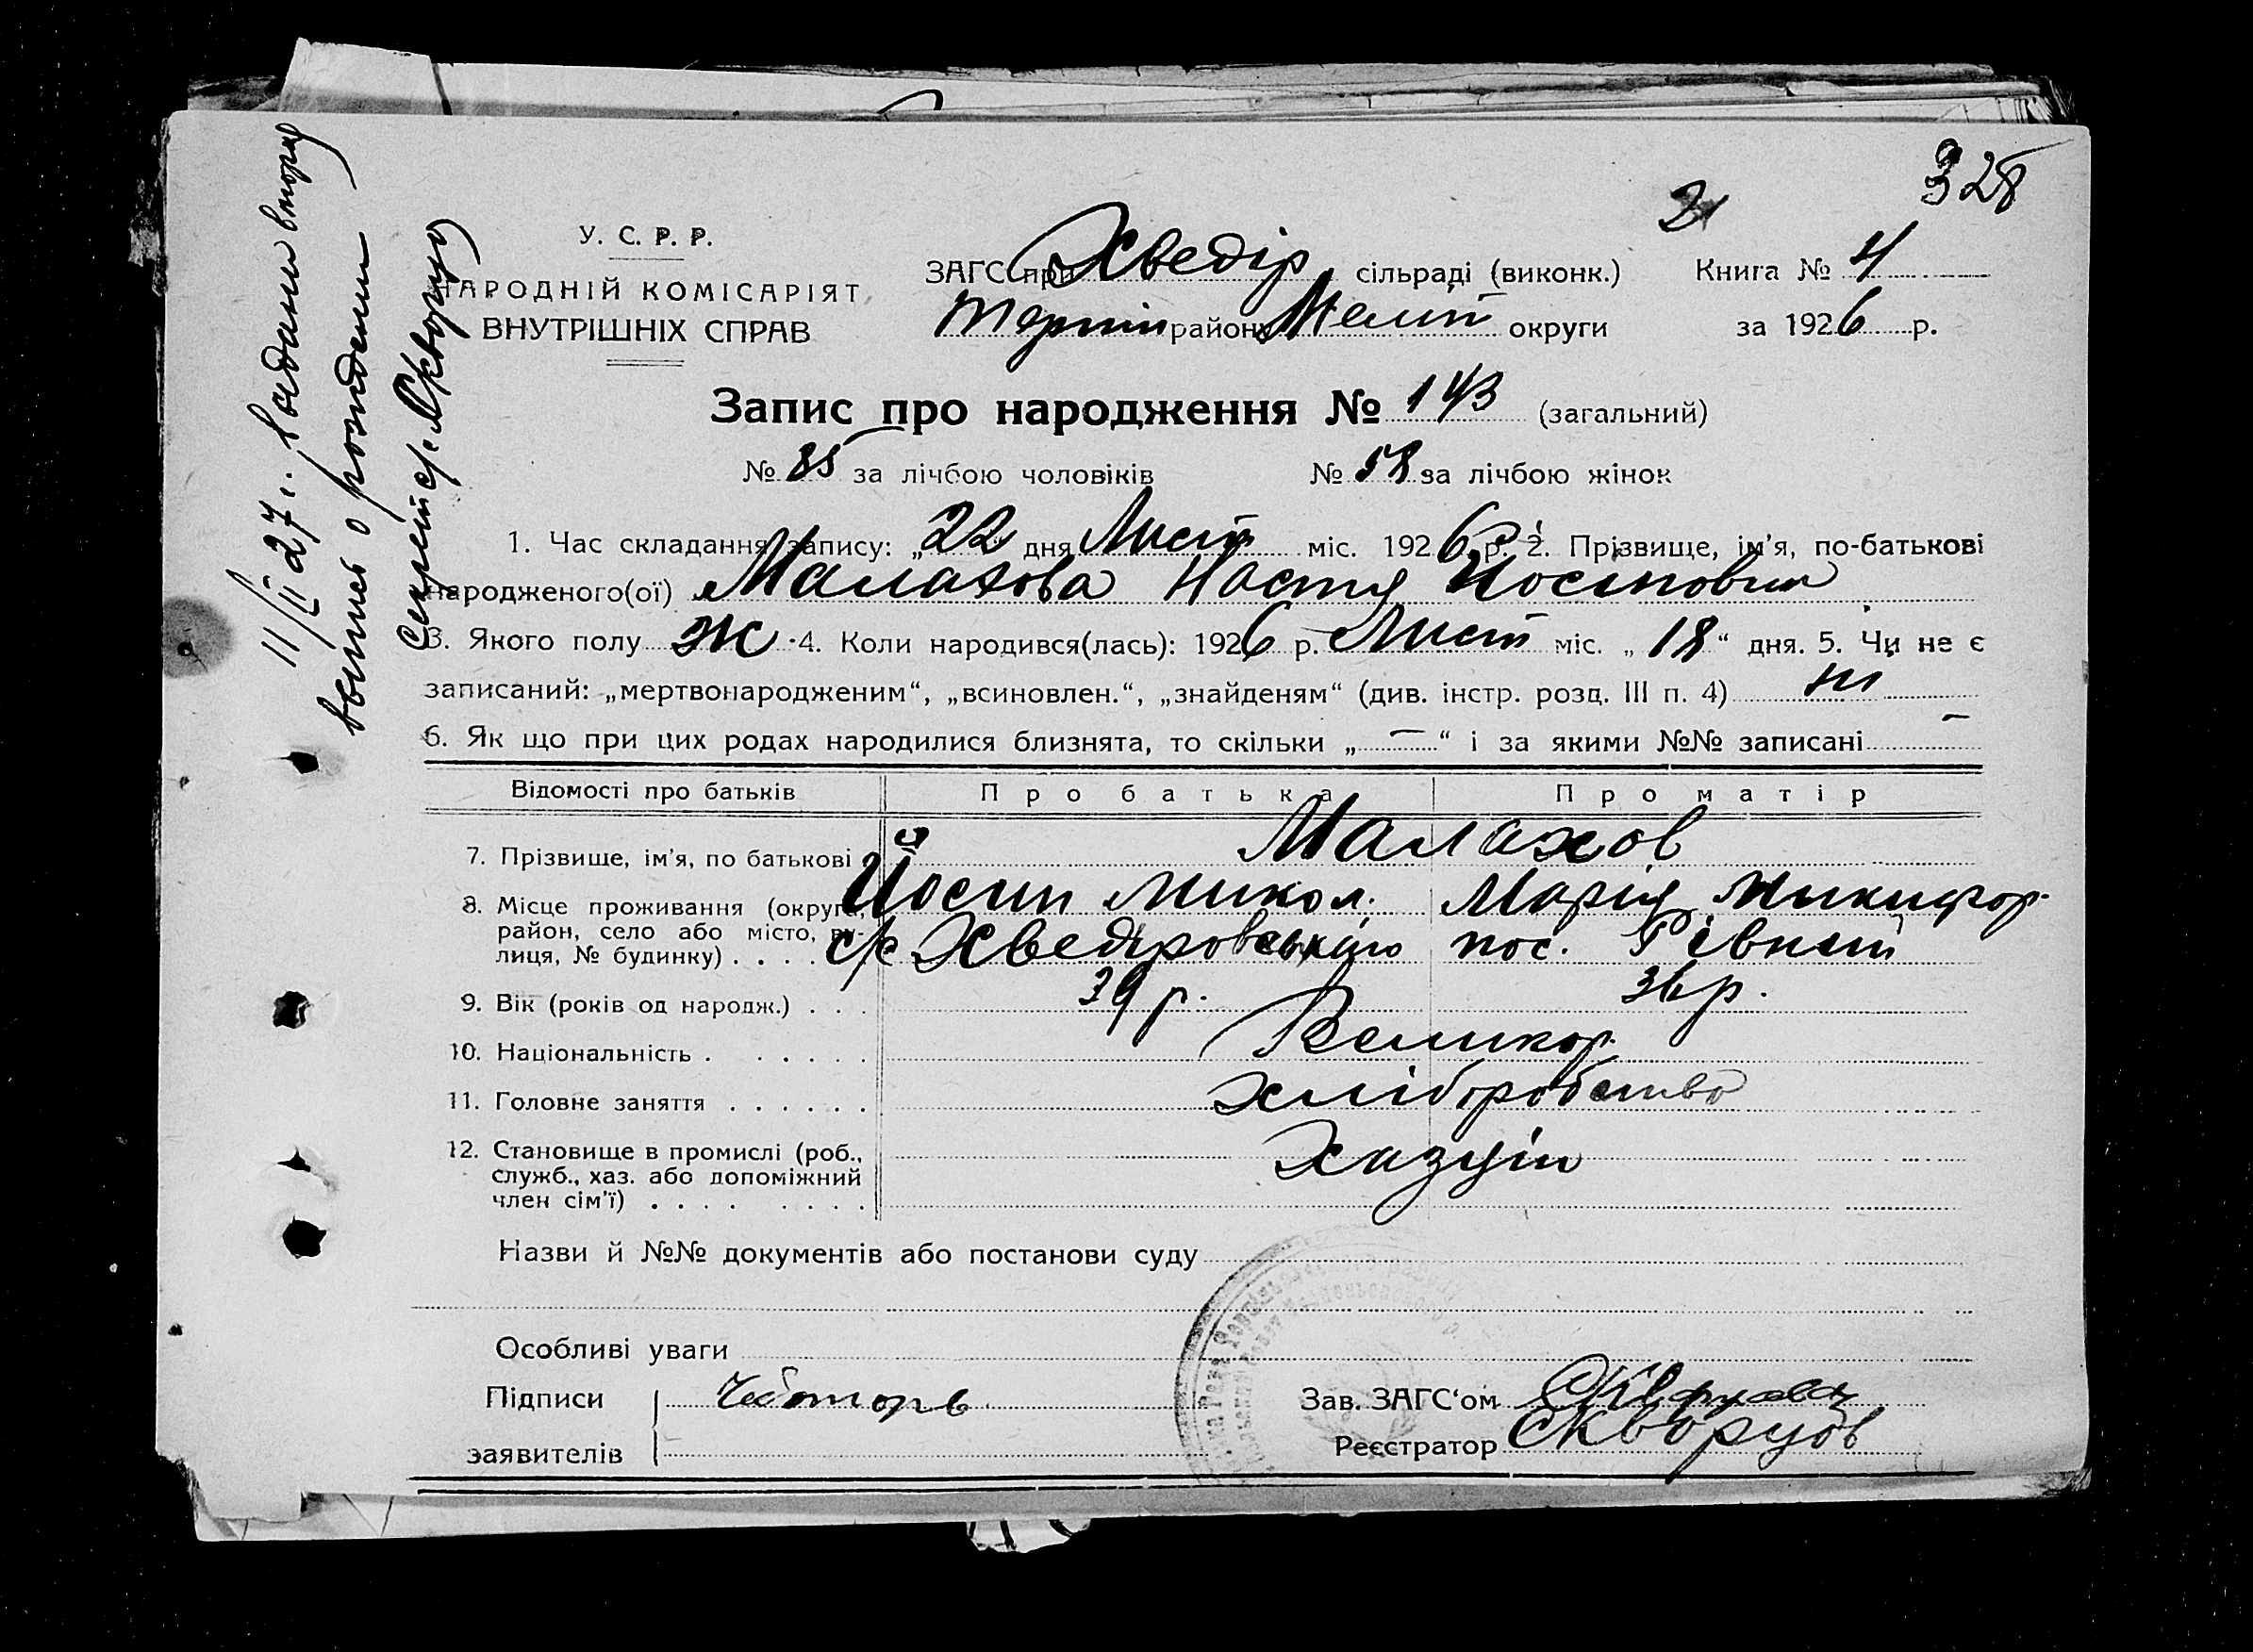 328
21
У. С. Р. Р.
НАРОДНІЙ КОМІСАРІЯТ
ВНУТРІШНІХ СПРАВ
ЗАГС при Хведір сільраді (виконк.) Книга № 4
району Меліт округи за 1926 р.
Запис про народження № 143 (загальний)
№ 85 за лічбою чоловіків № 58 за лічбою жінок
1. Час складання запису: „22 дня Лист міс. 1926 р. 2. Прізвище, ім'я, по-батькові
народженого(ої) Малахова Настя Йосиповна
3. Якого полу Ж 4. Коли народився(лась): 1926 р. Лист міс. „18“ дня. 5. Чи не є
записаний: „мертвонародженим“, „всиновлен.“, „знайденям“ (див. інстр. розд. III п. 4) ні
6. Як що при цих родах народилися близнята, то скільки „—“ і за якими №№ записані —
Відомості про батьків Про батька Про матір
7. Прізвище, ім'я, по батькові Малахов
Йосип Микол. Марія Микифор.
8. Місце проживання (округа,
район, село або місто, ву-
лиця, № будинку) . . . . с/с Хведіровського пос. Рівний
9. Вік (років од народж.) . . . 39 р. 36 р.
10. Національність . . . . . . Великор.
11. Головне заняття . . . . . . хліборобство
12. Становище в промислі (роб., Хазуїн
служб., хаз. або допоміжний
член сім'ї) . . . . . . . .
Назви й №№ документів або постанови суду
Особливі уваги
Підписи Чеботорв Зав. ЗАГС'ом
заявителів Реєстратор Скворцов
11/II 27 г. выдана
выпись о рождении
Секрет с/с Скворцов